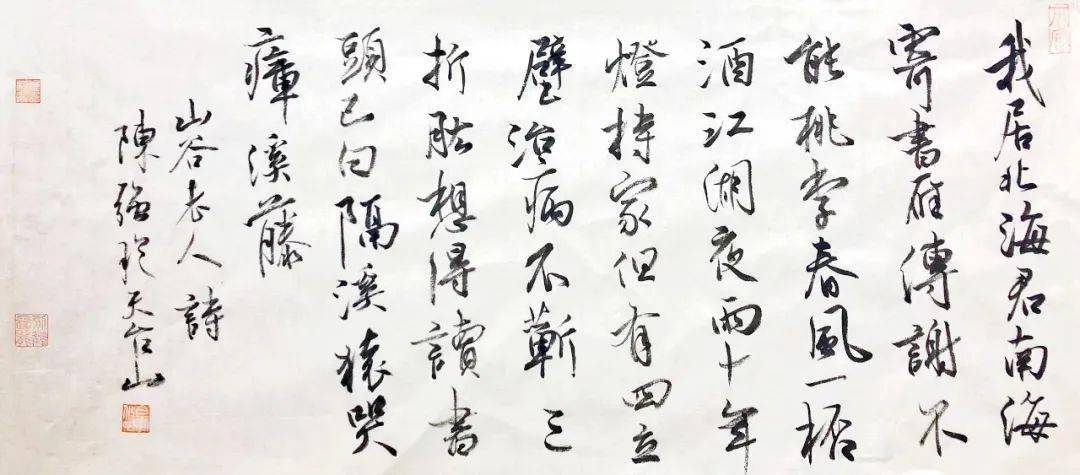 我居北海君南海
寄書雁傳謝不
能桃李春風一桮
酒江湖夜雨十年
燈持家但有四立
壁治病不蘄三
折肱想得讀書
頭已白隔溪猿哭
瘴溪藤
山谷老人詩
陳強 天台山